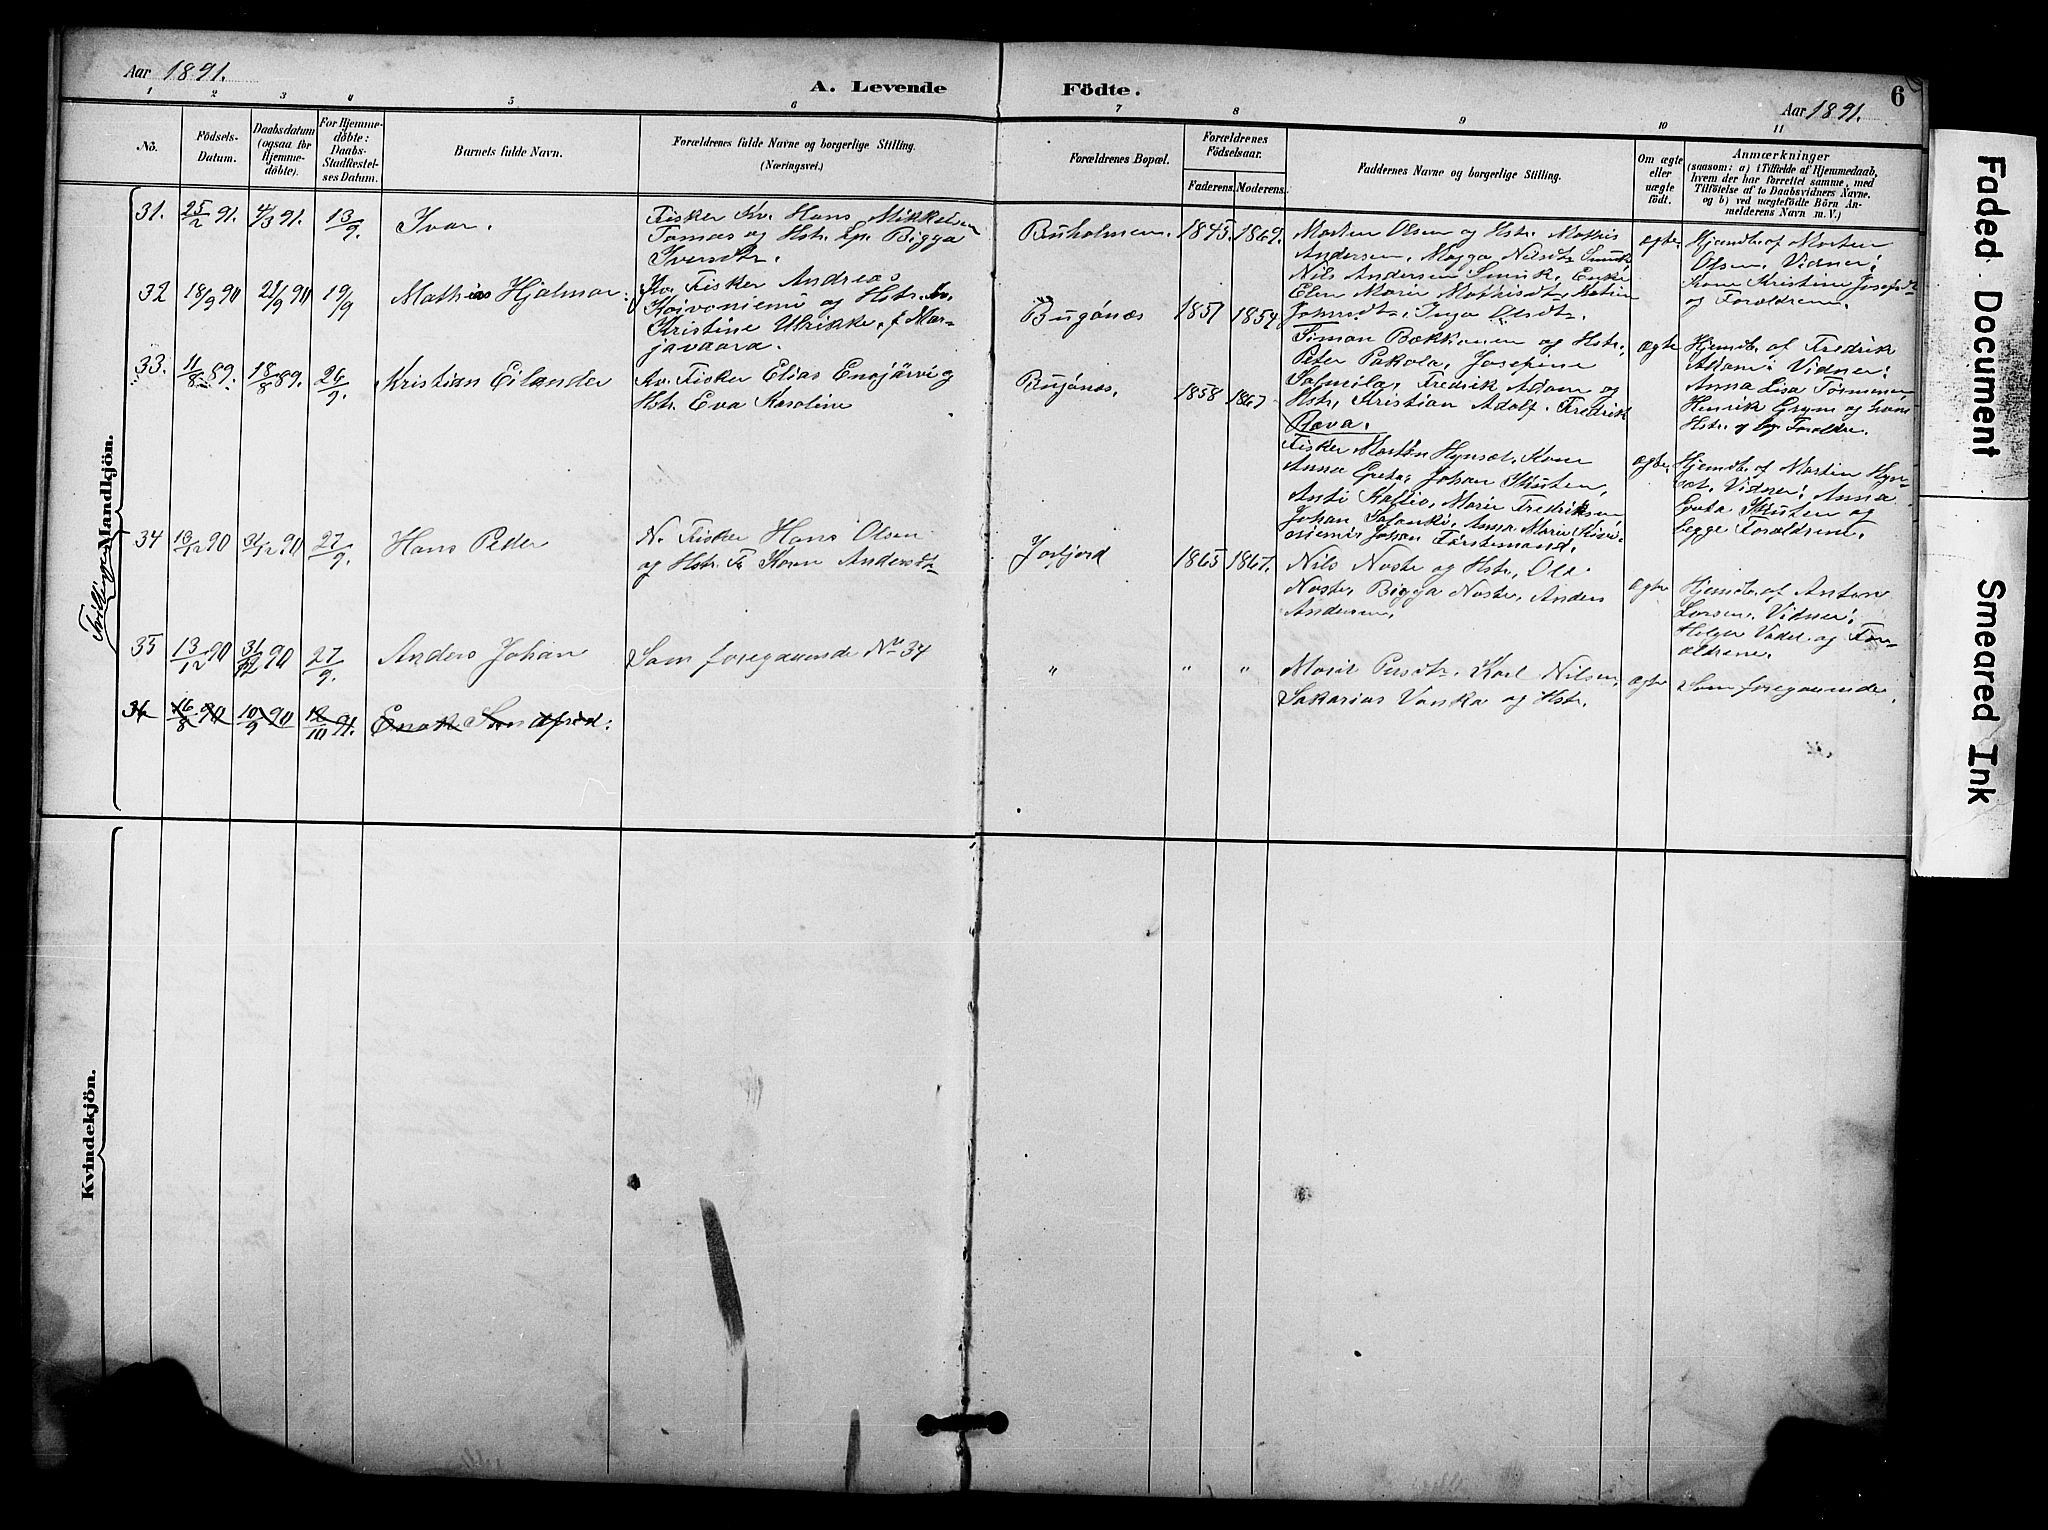 Aar 1891.
A. Levende
Födte.
Aar 1891.
6
1 2 3 4 5 6 7 8 9 10 11
No.
Födsels-
Datum.
Daabsdatum
(ogsaa for
Hjemme-
döbte).
For Hjemme-
döbte:
Daabs-
Stadfæstel-
ses Datum.
Barnets fulde Navn.
Forældrenes fulde Navne og borgerlige Stilling.
(Næringsvei.)
Forældrenes Bopæl.
Forældrenes
Födselsaar.
Faderens.
Moderens.
Faddernes Navne og borgerlige Stilling.
Om ægte
eller
uægte
födt.
Anmærkninger
(saasom: a) i Tilfælde af Hjemmedaab,
hvem der har forrettet samme, med
Tilföielse af to Daabsvidners Navne.
og b) ved uægtefödte Börn An-
melderens Navn m. V.)
Mandkjön.
31. 25/2 91. 4/3 91. 13/9. Ivar.
Fisker Kv. Hans Mikkelsen
Tomas og Hstr. Lp. Bigga
Iversdtr.
Buholmen. 1845. 1869.
Morten Olsen og Hstr. Mathis
Andersen, Magga Nilsdtr
Nils Andersen Enke
Elen Marie Mathisdtr.
Johnsdtr. Inga Olsdtr.
ægte
Hjemdb. af Morten
Olsen. Vidner:
Kone Kristine Josefsdtr
og Forældrene.
32 18/9 90 21/9 90 19/9 Mathias Hjalmar.
Kv. Fisker Andreas
Koivoniemi og Hstr. Kv.
Kristine Ulrikke, f. Mar-
javaara.
Bugönæs 1851 1854
Simon Bækkonen og Hstr.,
Peter Pakola, Josepine
Salmeila, Fredrik Adam og
Hstr., Kristian Adolf. Fredrik
ægte
Hjemdb. af Fredrik
Adam: Vidner:
Anna Lisa
Henrik og hans
Hstr. og Forældre.
33. 11/8 89. 18/8 89. 26/9. Kristian Eilander
Kv. Fisker Elias Enojärvi og
Hstr. Eva Karoline
Bugönæs. 1858 1867
Fisker Morten Hynsæt, Kone
Anna Greta, Johan
Anti Marie Fredriksen
Johan Salanki, Anna Marie
Johan
ægte.
Hjemdb. af Martin Hyn-
sæt. Vidner: Anna
Greta og
begge Forældrene.
Tvillinger
34 13/12 90 31/12 90 27/9. Hans Peder
N. Fisker Hans Olsen
og Hstr. Karen Andersdtr
Jarfjord 1865 1867.
Nils Noste og Hstr., Ole
Noste, Bigga Noste, Anders
Andersen.
ægte
Hjemdb. af Anton
Larsen. Vidner:
Holger og For-
ældrene.
35 13/12 90 31/12 90 27/9. Anders Johan
Som foregaaende No 34
" " "
Marit Persdtr. Karl Nilsen,
Sakarias Vanka og Hstr.
ægte
Som foregaaende.
36 16/8 90 10/9 90 12/10 91. Enok Sandfrid:
Kvindekjön.
Faded Document
Smeared Ink